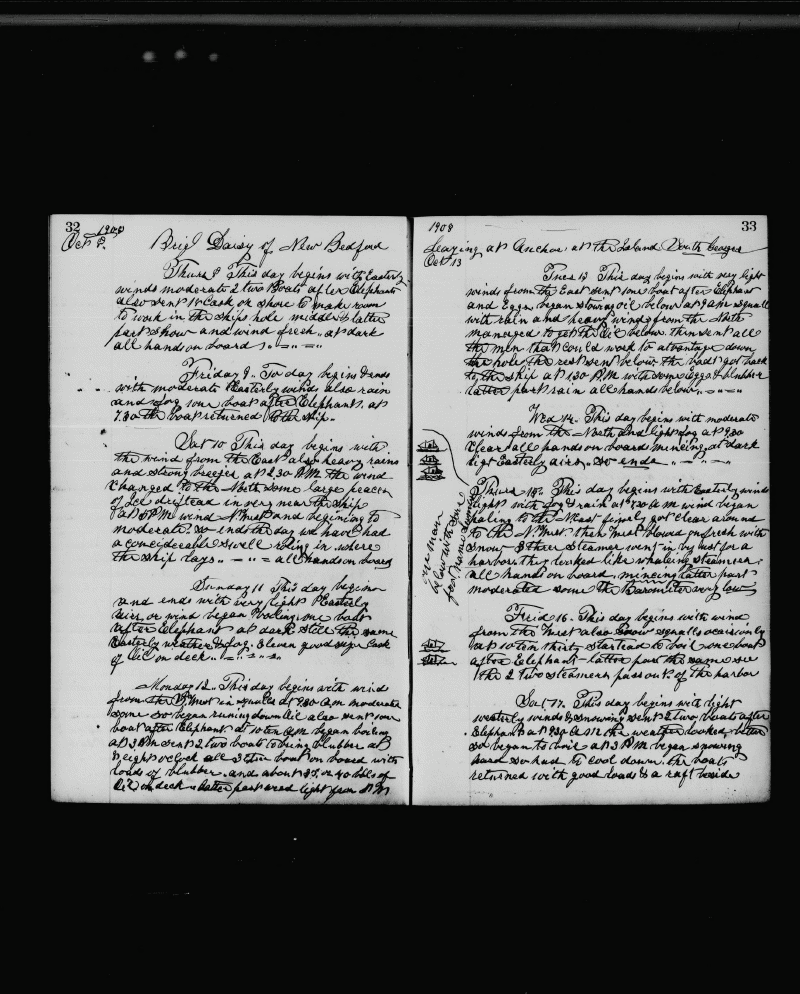 32 1908
Oct 8. Brig Daisy of New Bedford
Thurs 8 This day begins with Easterly
winds moderate 2 two Boats after Elephants
also sent 10 Cask on shore to make room
to work in the ships hole middle & latter
part snow and wind fresh.. at dark
all hands on board
Friday 9.. To day begins & ends
with moderate Easterly winds also rain
and fog 1 one boat after Elephants. at
7.30 the boat returned to the ship.
Sat 10 This day begins with
the wind from the East also heavy rains
and strong breezes at 2.30 P.M. the wind
changed to the North some large peaces
of Ice drifted in very near the ship
at P.M. wind N. West and begining to
moderate. So ends the day we have had
a conciderable swell roling in where
the ship lays .. all hands on board
Sunday 11 This day begins
and ends with very light Easterly
airs or wind began boiling one boat
after Elephant at dark still the same
Easterly weather & fog. Eleven good size Cask
of Oil on deck
Monday 12.. This day begins with wind
from the N West in squalls at 7.30 A.M. moderated
some so began runing down Oil also sent 1 one
boat after Elephants at 10 ten A.M. began boiling
at 3 P.M. sent 2 two boats to bring blubber at
8 eight oclock all 3 three boats on board with
loads of blubber. and about 35. or 40 bbls of
Oil on deck latter part wind light from N.
1908 33
Leaying at Anchor, at the Island South Georgia
Oct 13
Tues 13 This day begins with very light
winds from the East sent 1 one boat after Elephant
and Eggs began stowing oil below at 9 A.M. squall
with rain and heavy winds from the North
managed to get the Oil below. then sent all
the men that could work to advantage down
the hole the rest sent below the boat got back
to the ship at 1.30 P.M. with some Eggs & blubber
latter part rain all hands below.
Wed 14. This day begins with moderate
winds from the North and light fog at 9.30
clear all hands on board mincing at dark
light Easterly airs. so ends
Thurs 15. This day begins with Easterly winds
light with fog & rain at 7.30 A.M. wind began
haling to the N East finely got clear around
to the N. West. then West blowed up fresh with
snow 3 three steamer went in by us for a
harbor. they looked like whaling steamers.
all hands on board. mincing latter part
moderated some the Barometer very low
Frid 16. This day begins with wind
from the West also snow squalls occasionly
at 10 ten thirty started to boil one boat
after Elephant latter part the same see
the 2 two steamers pass out. of the harbor
Sat. 17. This day begins with light
westerly winds & snowing sent 2 two boats after
Elephant at 9.30 A.M. the weather looked better
so began to boil at 3 P.M. began snowing
hard so had to cool down. the boats
returned with good loads & a raft beside
one man
below with sore